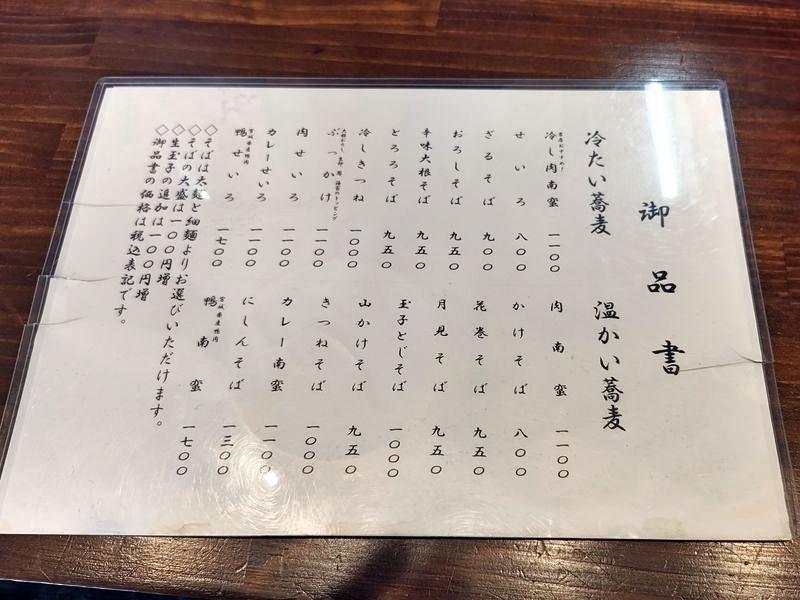 御品書
冷たい蕎麦
おすすめ！
冷し肉南蛮 一一〇〇
せいろ 八〇〇
ざるそば 九〇〇
おろしそば 九五〇
辛味大根そば 九五〇
とろろそば 九五〇
冷しきつね 一〇〇〇
ぶっかけ 一一〇〇
大根おろし、海苔のトッピング
肉せいろ 一一〇〇
カレーせいろ 一一〇〇
宮城県産鴨肉
鴨せいろ 一七〇〇
温かい蕎麦
肉南蛮 一一〇〇
かけそば 八〇〇
花巻そば 九五〇
月見そば 九五〇
玉子とじそば 一〇〇〇
山かけそば 九五〇
きつねそば 一〇〇〇
カレー南蛮 一一〇〇
にしんそば 一三〇〇
宮城県産鴨肉
鴨南蛮 一七〇〇
◇そばは太麺と細麺よりお選びいただけます。
◇そばの大盛は一〇〇円増
◇生玉子の追加は一〇〇円増
◇御品書の価格は税込表記です。